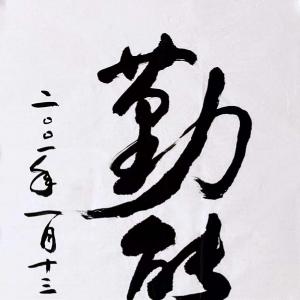 勤
二〇〇一年一月十三